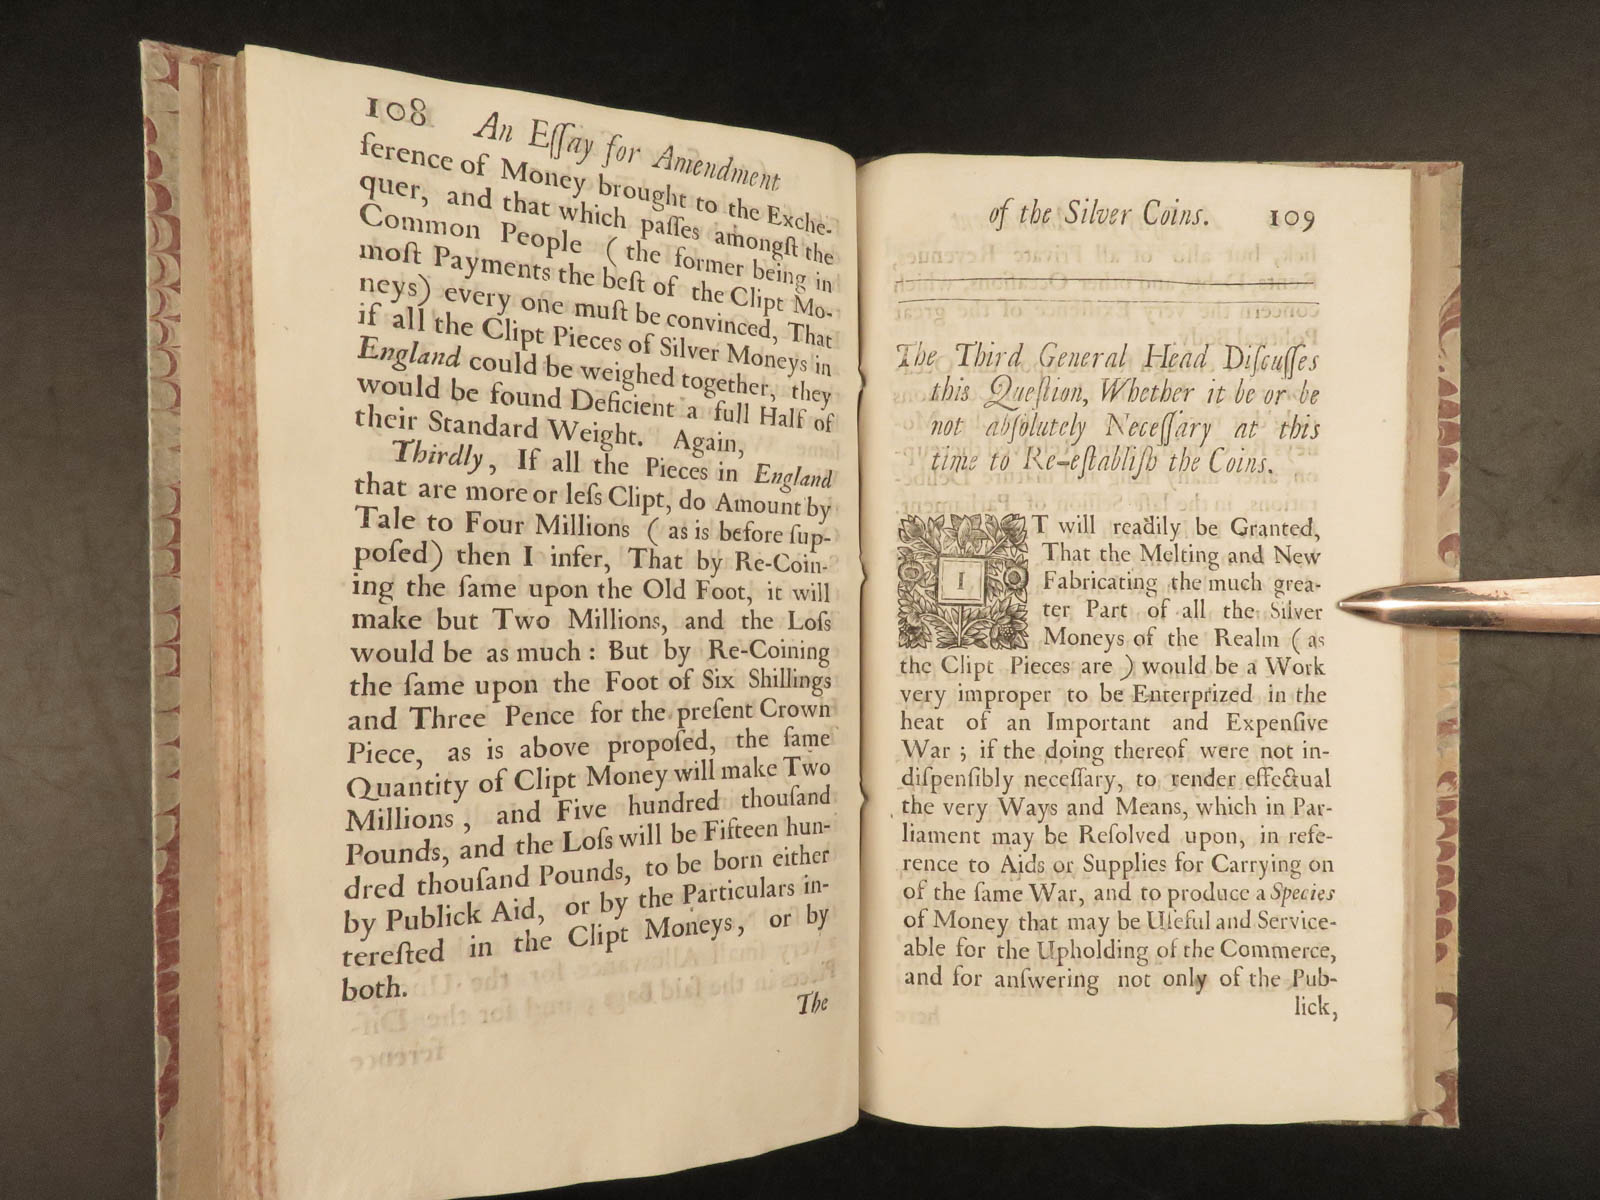 108 An Eſſay for Amendment
ference of Money brought to the Exche-
quer, and that which paſſes amongſt the
Common People ( the former being in
moſt Payments the beſt of the Clipt Mo-
neys) every one muſt be convinced, That
if all the Clipt Pieces of Silver Moneys in
England could be weighed together, they
would be found Deficient a full Half of
their Standard Weight. Again,
Thirdly, If all the Pieces in England
that are more or leſs Clipt, do Amount by
Tale to Four Millions ( as is before ſup-
poſed) then I infer, That by Re-Coin-
ing the ſame upon the Old Foot, it will
make but Two Millions, and the Loſs
would be as much : But by Re-Coining
the ſame upon the Foot of Six Shillings
and Three Pence for the preſent Crown
Piece, as is above propoſed, the ſame
Quantity of Clipt Money will make Two
Millions, and Five hundred thouſand
Pounds, and the Loſs will be Fifteen hun-
dred thouſand Pounds, to be born either
by Publick Aid, or by the Particulars in-
tereſted in the Clipt Moneys, or by
both.
The
of the Silver Coins. 109
The Third General Head Diſcuſſes
this Queſtion, Whether it be or be
not abſolutely Neceſſary at this
time to Re-eſtabliſh the Coins.
IT will readily be Granted,
That the Melting and New
Fabricating the much grea-
ter Part of all the Silver
Moneys of the Realm ( as
the Clipt Pieces are ) would be a Work
very improper to be Enterprized in the
heat of an Important and Expenſive
War ; if the doing thereof were not in-
diſpenſibly neceſſary, to render effectual
the very Ways and Means, which in Par-
liament may be Reſolved upon, in refe-
rence to Aids or Supplies for Carrying on
of the ſame War, and to produce a Species
of Money that may be Uſeful and Service-
able for the Upholding of the Commerce,
and for anſwering not only of the Pub-
lick,